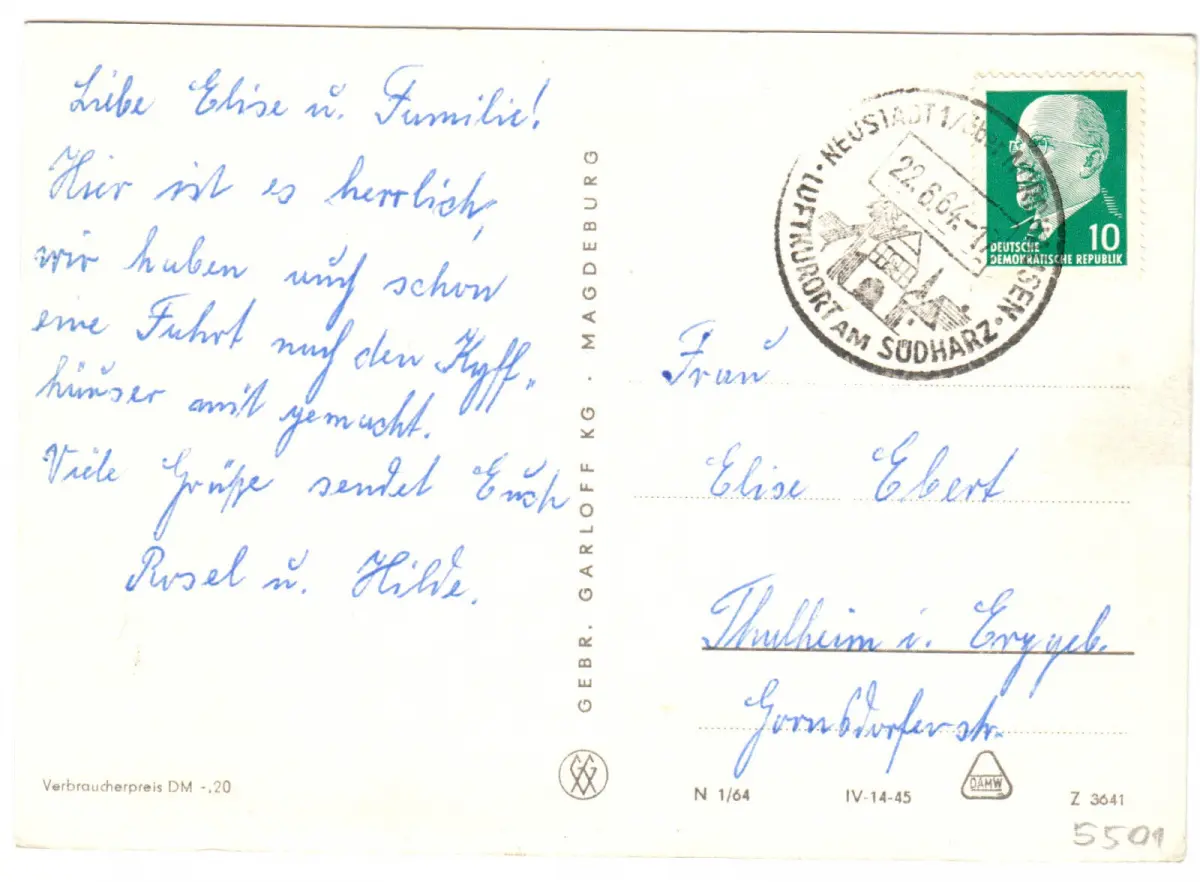 Liebe Elise u. Familie!
Hier ist es herrlich,
wir haben auch schon
eine Fahrt nach den Kyff„
häuser mit gemacht.
Viele Grüße sendet Euch
Rosel u. Hilde.
Verbraucherpreis DM -,20
GEBR. GARLOFF KG · MAGDEBURG
NEUSTADT 1/ über NORDHAUSEN · LUFTKURORT AM SÜDHARZ ·
22.6.64.-
10
DEUTSCHE
DEMOKRATISCHE REPUBLIK
Frau
Elise Ebert
Thalheim i. Erzgeb.
Gornsdorferstr.
N 1/64
IV-14-45
DAMW
Z 3641
5501